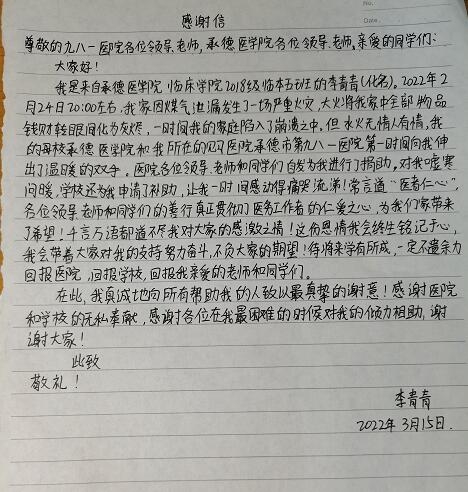 No.
Date.
感谢信
尊敬的九八一医院各位领导、老师,承德医学院各位领导、老师,亲爱的同学们:
大家好!
我是来自承德医学院临床学院2018级临本五班的李青青(化名)。2022年2
月24日20:00左右,我家因煤气泄漏发生了一场严重火灾,大火将我家中全部物品
钱财转眼间化为灰烬,一时间我的家庭陷入了崩溃之中。但水火无情人有情,我
的母校承德医学院和我所在的见习医院承德市第九八一医院第一时间向我伸
出了温暖的双手。医院各位领导、老师和同学们自发为我进行了捐助,对我嘘寒
问暖,学校还为我申请了补助,让我一时间感动得痛哭流涕!常言道“医者仁心”,
各位领导、老师和同学们的善行真正贯彻了医务工作者的仁爱之心,为我们家带来
了希望!千言万语都道不尽我对大家的感激之情!这份恩情我会终生铭记于心,
我会带着大家对我的支持努力奋斗,不负大家的期望!待将来学有所成,一定不遗余力
回报医院,回报学校,回报我亲爱的老师和同学们。
在此,我真诚地向所有帮助我的人致以最真挚的谢意!感谢医院
和学校的无私奉献,感谢各位在我最困难的时候对我的倾力相助,谢
谢大家!
此致
敬礼!
李青青
2022年3月15日.